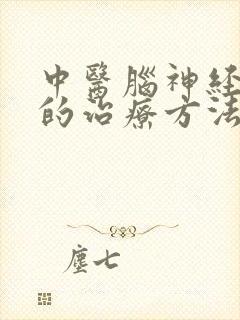 中醫腦神經
的治療方法
塵七